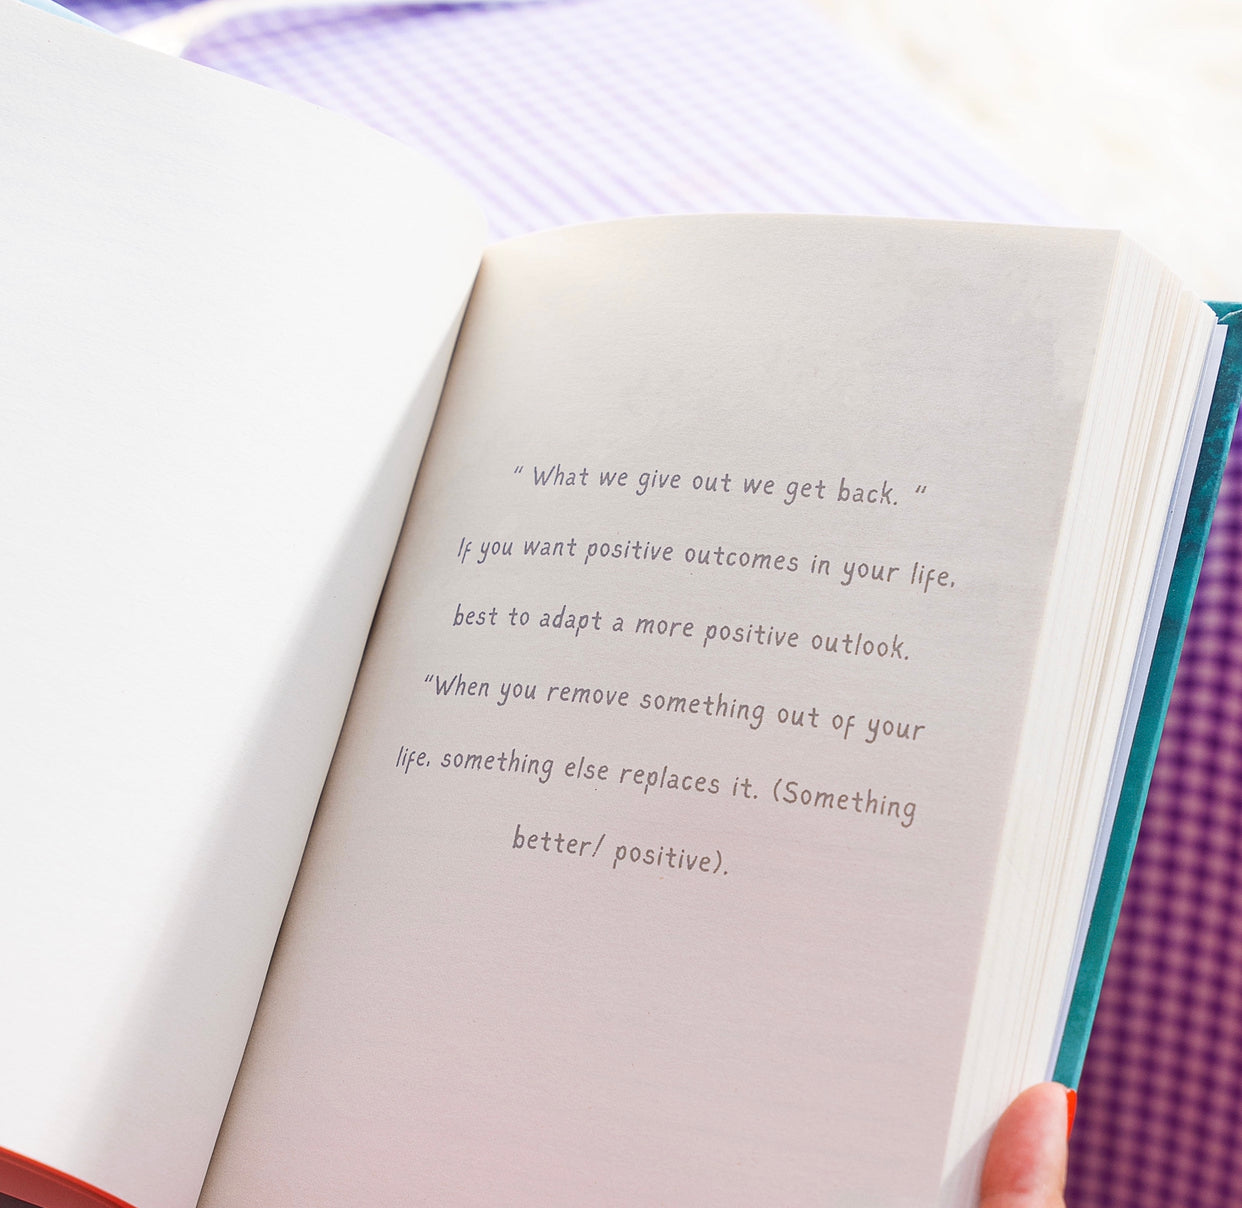 “ What we give out we get back. “
If you want positive outcomes in your life,
best to adapt a more positive outlook.
“When you remove something out of your
life, something else replaces it. (Something
better/ positive).